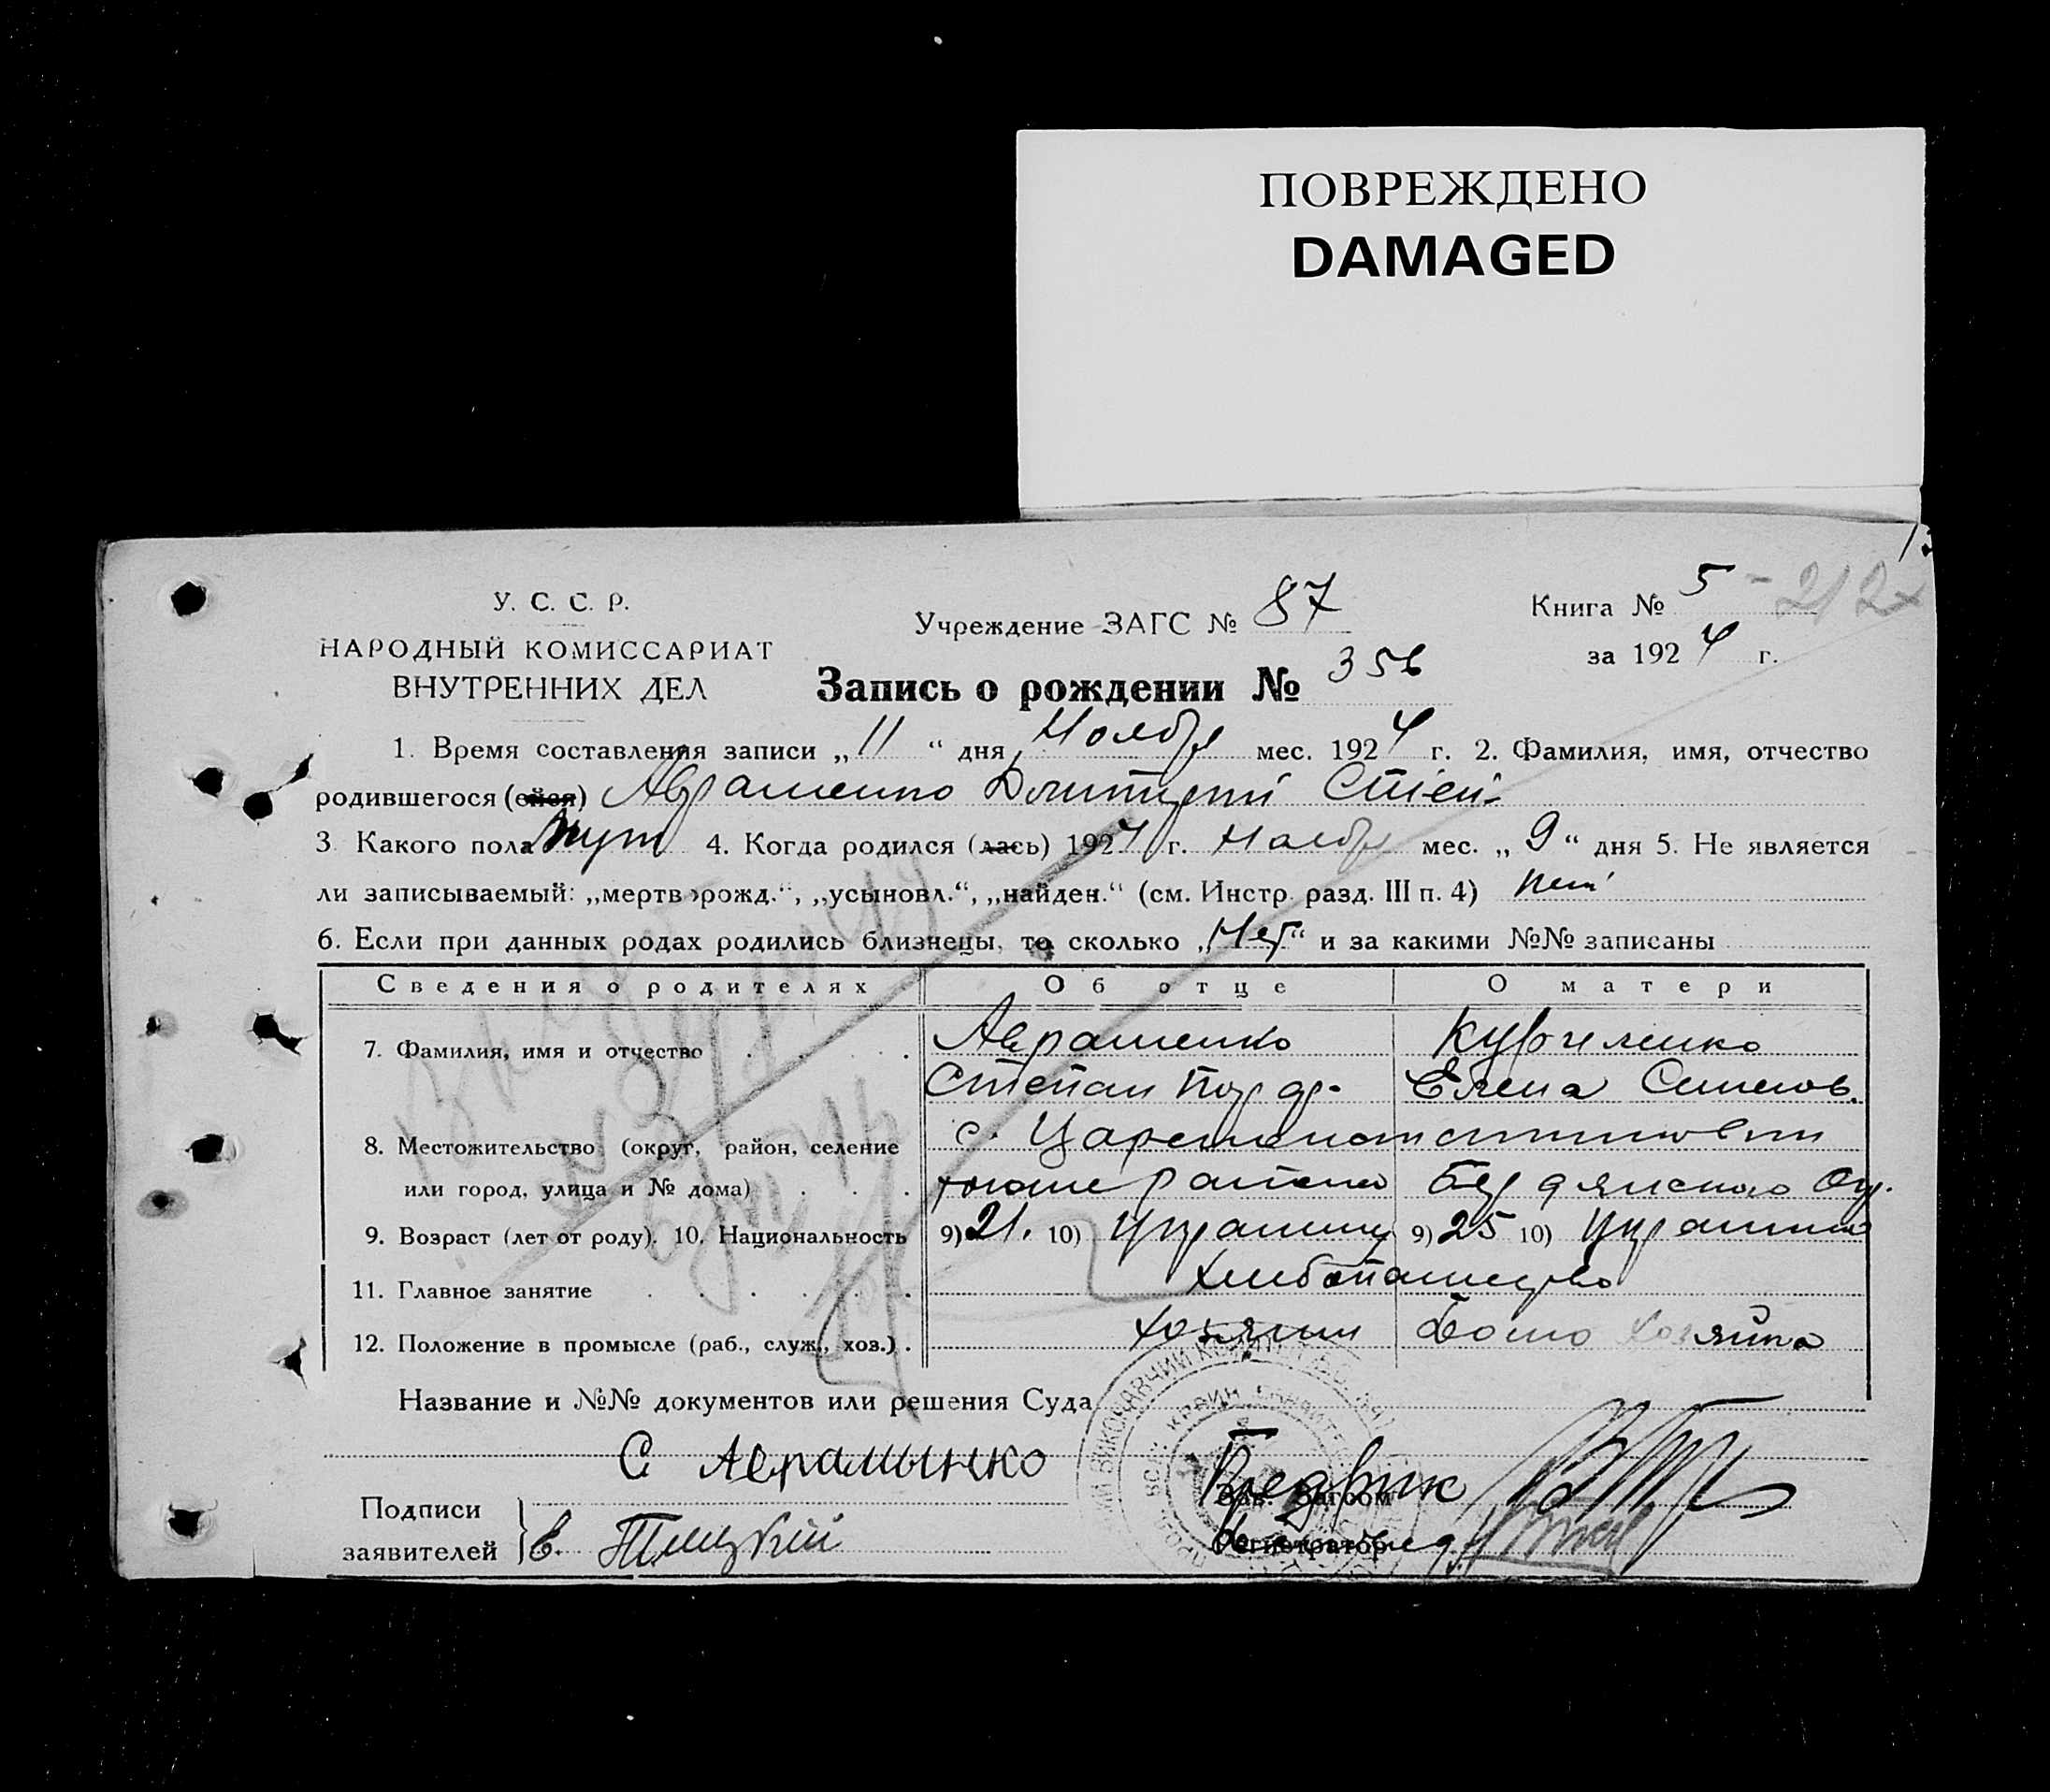 ПОВРЕЖДЕНО
DAMAGED
У. С. С. Р.
НАРОДНЫЙ КОМИССАРИАТ
ВНУТРЕННИХ ДЕЛ
Учреждение ЗАГС № 87
Книга № 5
за 1924 г.
Запись о рождении № 356
1. Время составления записи „11“ дня Ноября мес. 1924 г. 2. Фамилия, имя, отчество
родившегося (ейся) Авраменко Дмитрий Степ.
3. Какого пола муж 4. Когда родился (лась) 1924 г. Ноября мес. „9“ дня 5. Не является
ли записываемый: „мертворожд.“, „усыновл.“, „найден.“ (см. Инстр. разд. III п. 4) нет
6. Если при данных родах родились близнецы, то сколько „Нет“ и за какими №№ записаны
Сведения о родителях Об отце О матери
7. Фамилия, имя и отчество Авраменко
Степан Елена Семенов.
8. Местожительство (округ, район, селение с. Цареконстантиновки
или город, улица и № дома) района Бердянского Окр.
9. Возраст (лет от роду). 10. Национальность 9) 21. 10) 9) 25 10)
11. Главное занятие хлебопашество
12. Положение в промысле (раб., служ., хоз.) хозяин Домо хозяйка
Название и №№ документов или решения Суда
С Аврамынко
Подписи
заявителей
Зав. Загсом
Регистратор